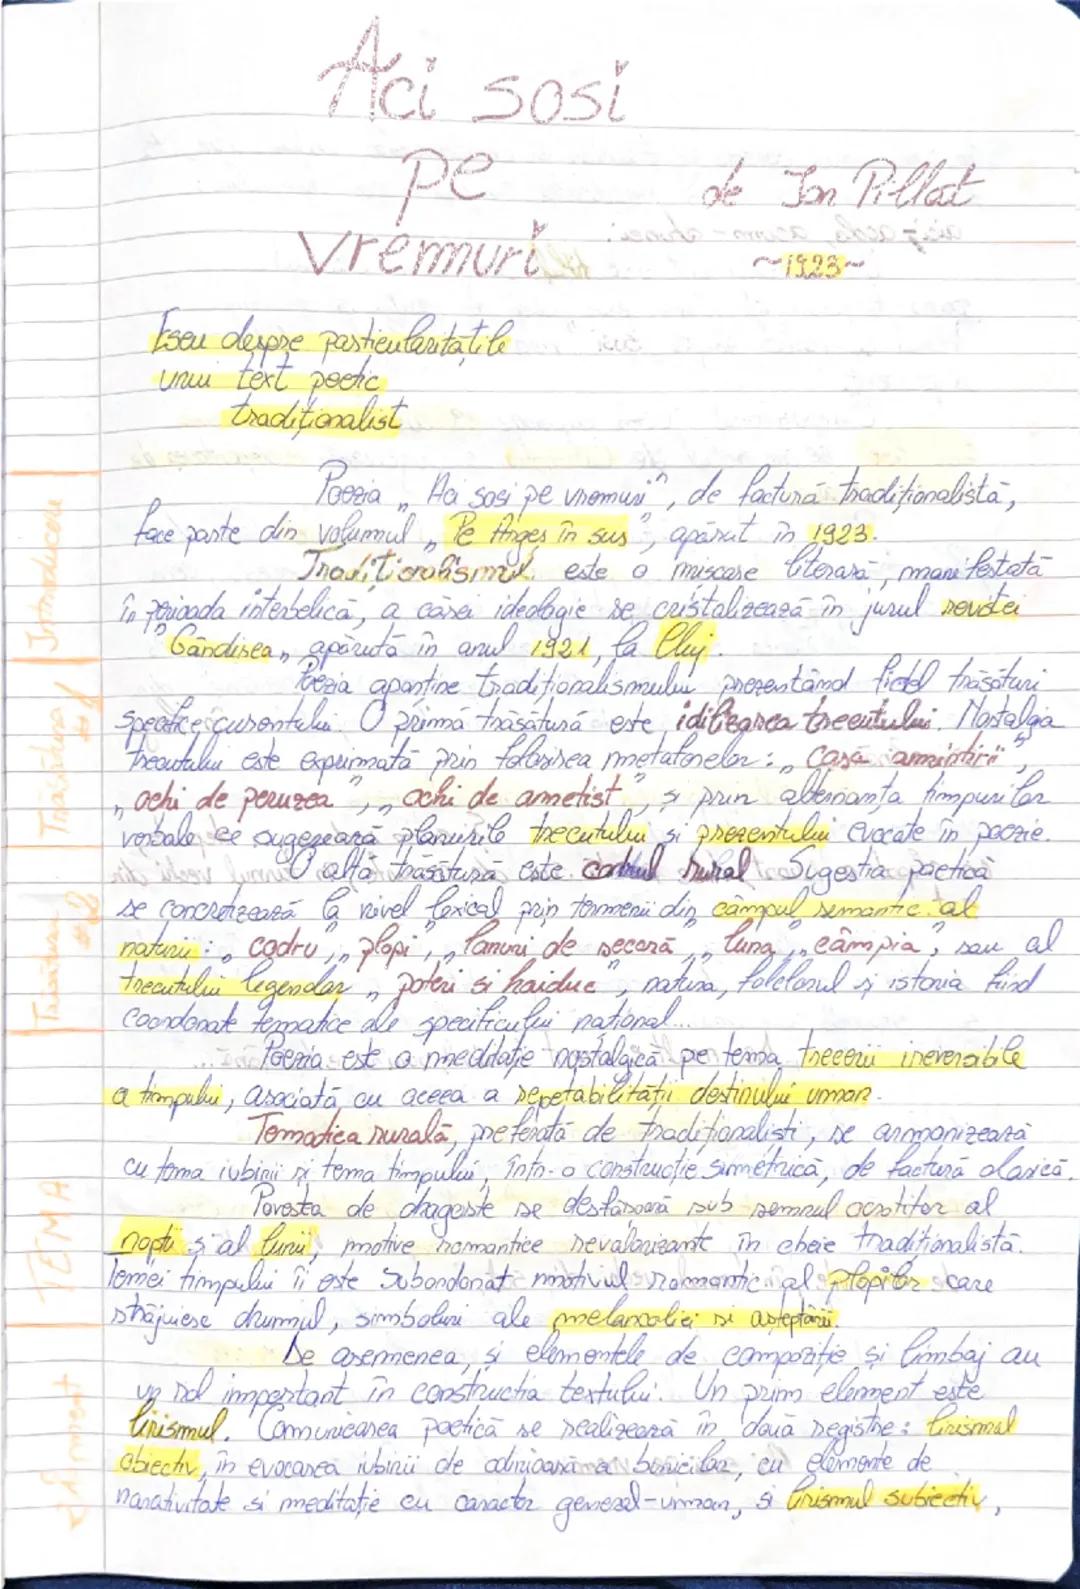 Aci sosi
pe
de Ion Pillat
vremuri
~1923~
Eseu despre particularitățile
unui text poetic
tradiționalist
Introducere
Poezia „Aci sosi pe vremuri”, de factură tradiționalistă,
face parte din volumul „Pe Argeș în sus”, apărut în 1923.
Tradiționalismul este o mișcare literară, manifestată
în perioada interbelică, a cărei ideologie se cristalizează în jurul revistei
"Gândirea„ apărută în anul 1921, la Cluj.
Trăsătura #1
Poezia aparține tradiționalismului prezentând fidel trăsături
specifice curentului. O primă trăsătură este idilizarea trecutului. Nostalgia
trecutului este exprimată prin folosirea metaforelor: „casa amintirii”,
„ochi de peruzea”, „ochi de ametist”, și prin alternanța timpurilor
verbale ce sugerează planurile trecutului și prezentului evocate în poezie.
Trăsătura #2
O altă trăsătură este cadrul rural. Sugestia poetică
se concretizează la nivel lexical prin termenii din câmpul semantic al
naturii: „codru”, „plopi”, „lanuri de secară”, „luna”, „câmpia”, sau al
trecutului legendar „poteri și haiduc”, natura, folclorul și istoria fiind
coordonate tematice ale specificului național...
TEMA
... Poezia este o meditație nostalgică pe tema trecerii ireversibile
a timpului, asociată cu aceea a repetabilității destinului uman.
Tematica rurală, preferată de tradiționaliști, se armonizează
cu tema iubirii și tema timpului, într-o construcție simetrică, de factură clasică.
Povestea de dragoste se desfășoară sub semnul ocrotitor al
nopții și al lunii, motive romantice revalorizante în cheie tradiționalistă.
Temei timpului îi este subordonat motivul romantic al plopilor care
străjuiesc drumul, simboluri ale melancoliei și așteptării.
De asemenea, și elementele de compoziție și limbaj au
un rol important în construcția textului. Un prim element este
lirismul. Comunicarea poetică se realizează în două registre: lirismul
obiectiv, în evocarea iubirii de odinioară a bunicilor, cu elemente de
narativitate și meditație cu caracter general-uman, și lirismul subiectiv,